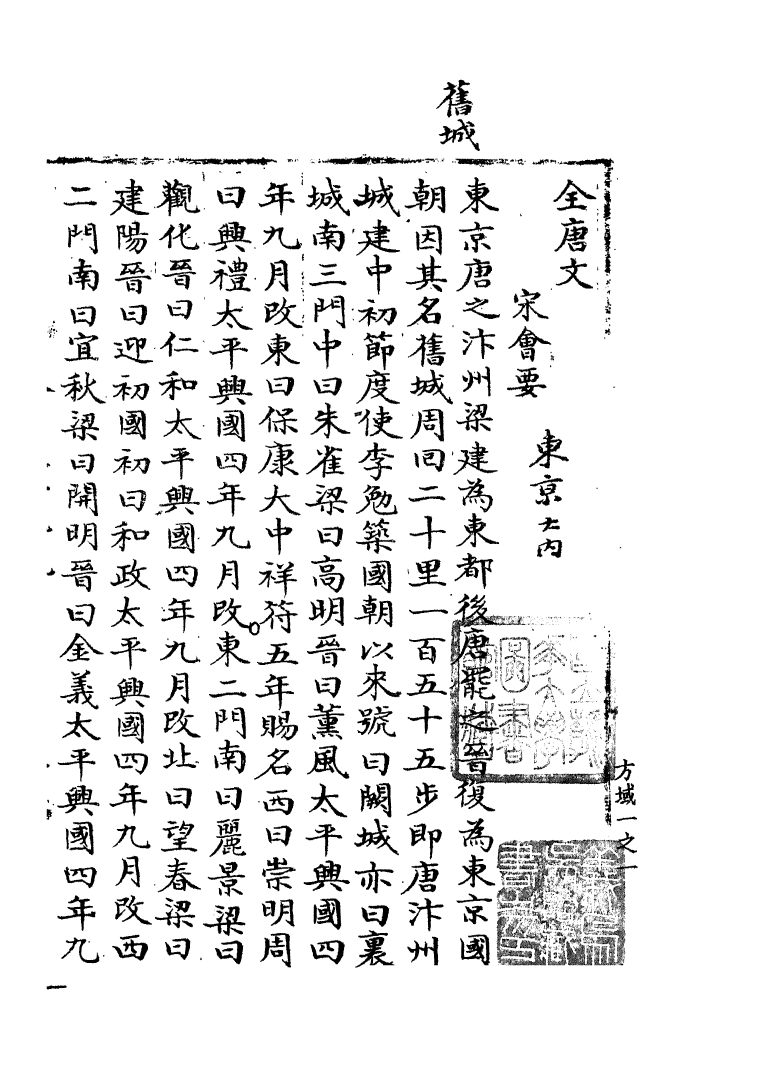 舊城
全唐文
宋會要
東京大内
東京唐之汴州梁建為東都後唐罷之晉復為東京國
朝因其名舊城周回二十里一百五十五步即唐汴州
城建中初節度使李勉築國朝以來號曰闕城亦曰裏
城南三門中曰朱雀梁曰高明晉曰薰風太平興國四
年九月改東曰保康大中祥符五年賜名西曰崇明周
曰興禮太平興國四年九月改東二門南曰麗景梁曰
觀化晉曰仁和太平興國四年九月改北曰望春梁曰
建陽晉曰迎初國初曰和政太平興國四年九月改西
二門南曰宜秋梁曰開明晉曰金義太平興國四年九
方域一之一
一